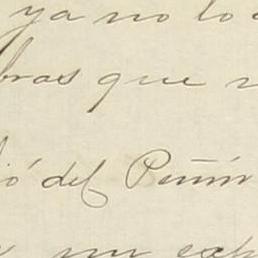 ya no lo
bras que
ió del Peñín
un exp